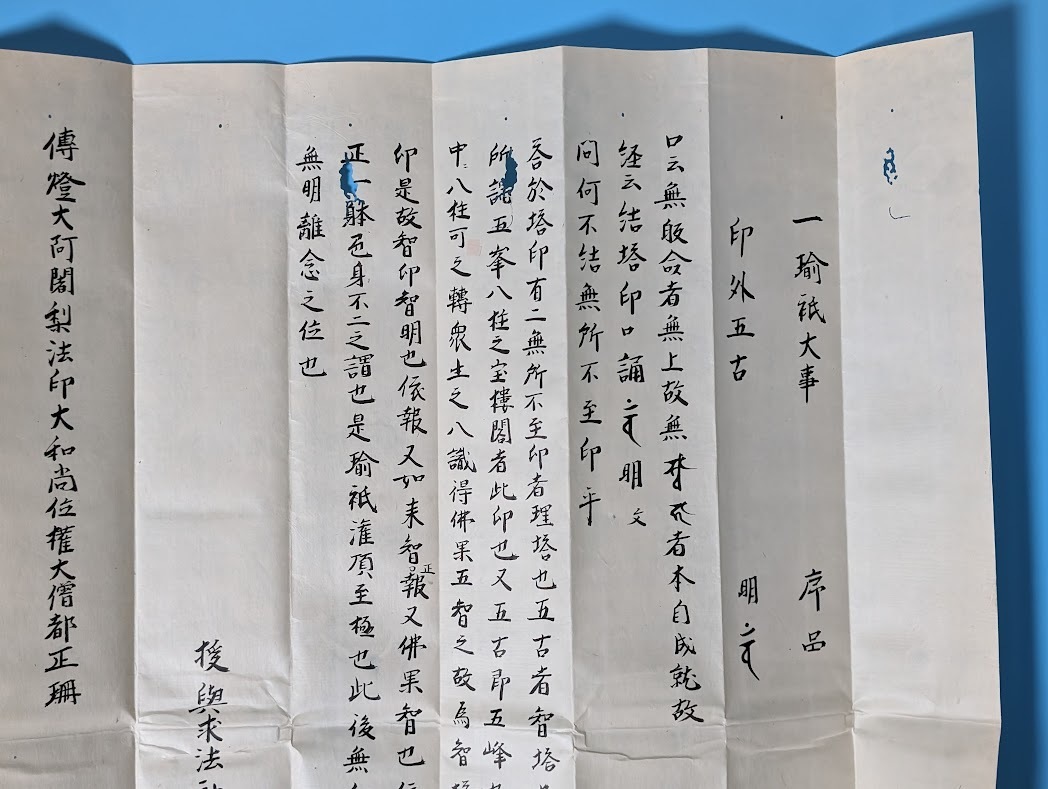 一瑜祇大事 序品
印外五古 明
口云無能治者無上故無 者本自成就故
経云結塔印口誦 明文
問何不結無所不至印乎
答於塔印有二無所不至印者理塔也五古者智塔
所 五峯八柱之宝樓閣者此印也又五古即五峰
中八柱可之轉衆生之八識得佛果五智之故為智
印是故智印智明也依報又如来智正報又佛果智也
正一躰色身不二之謂也是瑜祇潅頂至極也此後無
無明離念之位也
授與求法
傳燈大阿闍梨法印大和尚位權大僧都正珊